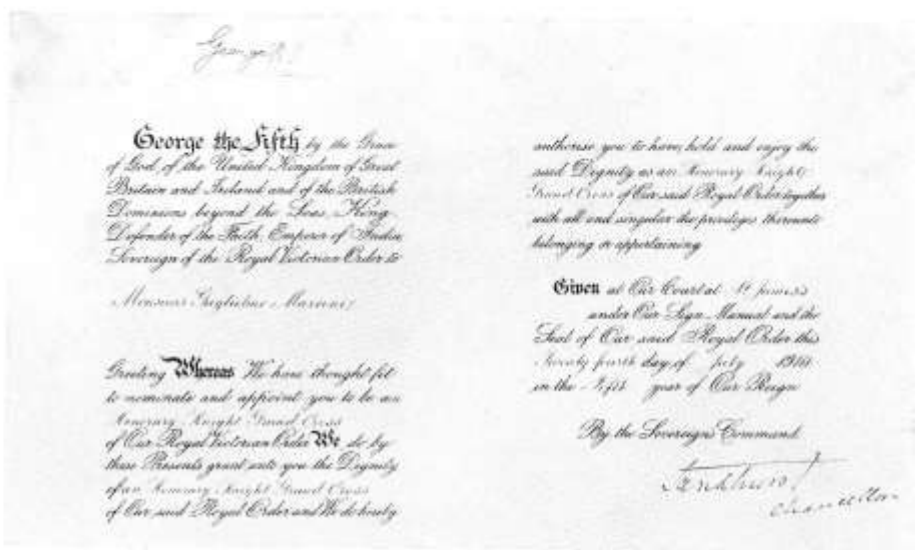 George R.I.
George the Fifth by the Grace
of God, of the United Kingdom of Great
Britain and Ireland and of the British
Dominions beyond the Seas King,
Defender of the Faith, Emperor of India,
Sovereign of the Royal Victorian Order to
Monsieur Guglielmo Marconi
Greeting Whereas We have thought fit
to nominate and appoint you to be an
Honorary Knight Grand Cross
of Our Royal Victorian Order We do by
these Presents grant unto you the Dignity
of an Honorary Knight Grand Cross
of Our said Royal Order and We do hereby
authorise you to have, hold and enjoy the
said Dignity as an Honorary Knight
Grand Cross of Our said Royal Order together
with all and singular the privileges thereunto
belonging or appertaining
Given at Our Court at St James's
under Our Sign Manual and the
Seal of Our said Royal Order this
Twenty fourth day of July 1914
in the Fifth year of Our Reign
By the Sovereign's Command.
Chancellor